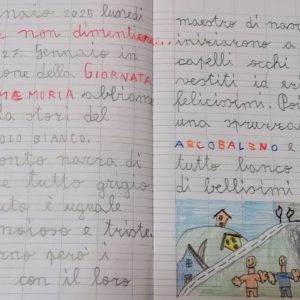 naio 2025 lunedì
e non dimenticare...
27 Gennaio in
one della GIORNATA
MEMORIA abbiamo
la storia del
OLO BIANCO.
onto narra di
e tutto grigio
uto è uguale
noioso e triste.
rno però i
con il loro
maestro di nas
iniziarono a
capelli occhi
vestiti ed er
felicissimi. Poi
una spruzza
ARCOBALENO e
tutto banco
di bellissimi